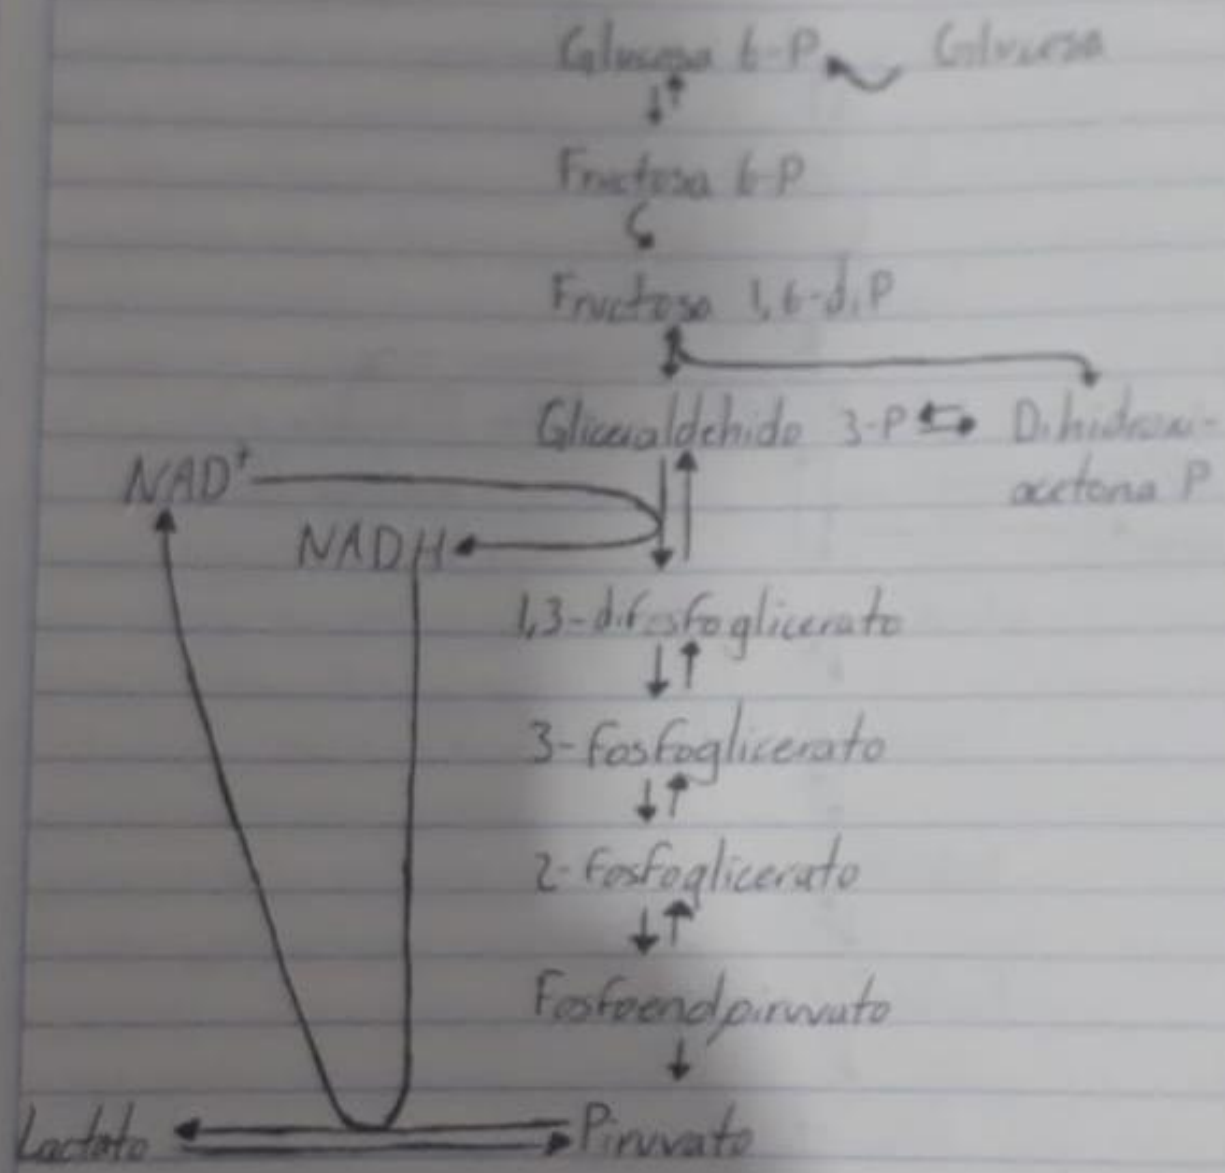 Glucosa 6-P Glucosa
Fructosa 6-P
Fructosa 1,6-di P
Gliceraldehido 3-P Dihidroxi-
acetona P
NAD+
NADH
1,3-difosfoglicerato
3-fosfoglicerato
2-fosfoglicerato
Fosfoenolpiruvato
Lactato Piruvato